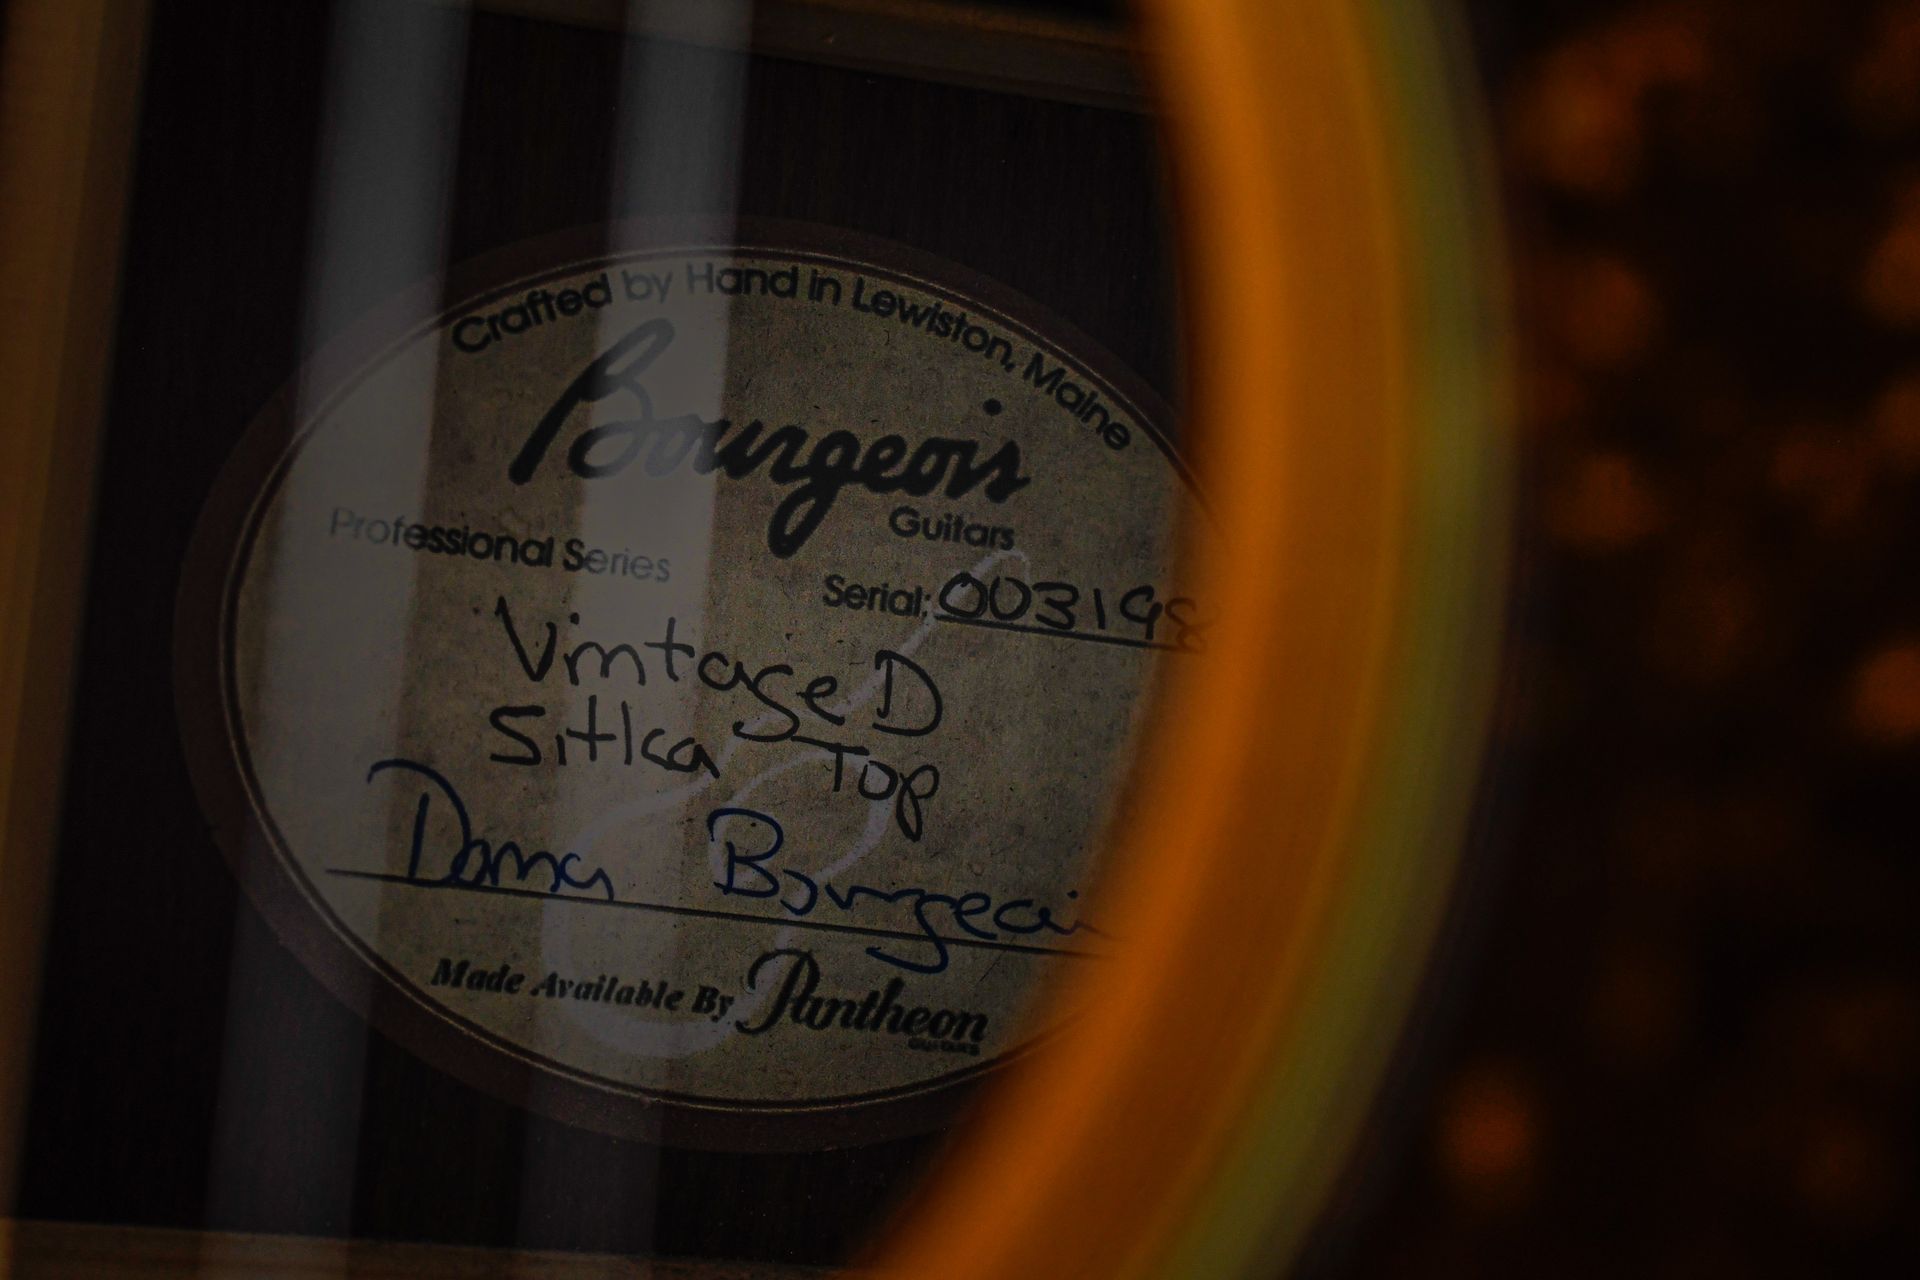 Crafted by Hand in Lewiston, Maine
Bourgeois
Guitars
Professional Series
Serial: 003198
Vintage D
Sitka Top
Dana Bourgeois
Made Available By Pantheon
GUITARS